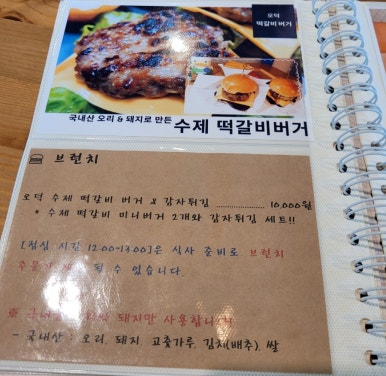 오덕
떡갈비버거
국내산 오리 & 돼지로 만든 수제 떡갈비버거
브런치
오덕 수제 떡갈비 버거 & 감자튀김 .................. 10,000원
* 수제 떡갈비 미니버거 2개와 감자튀김 세트!!
[점심 시간 12:00~13:00]은 식사 준비로 브런치
주문이 될 수 있습니다.
※ 돼지만 사용합니다
- 국내산 : 오리, 돼지, 고춧가루, 김치(배추), 쌀